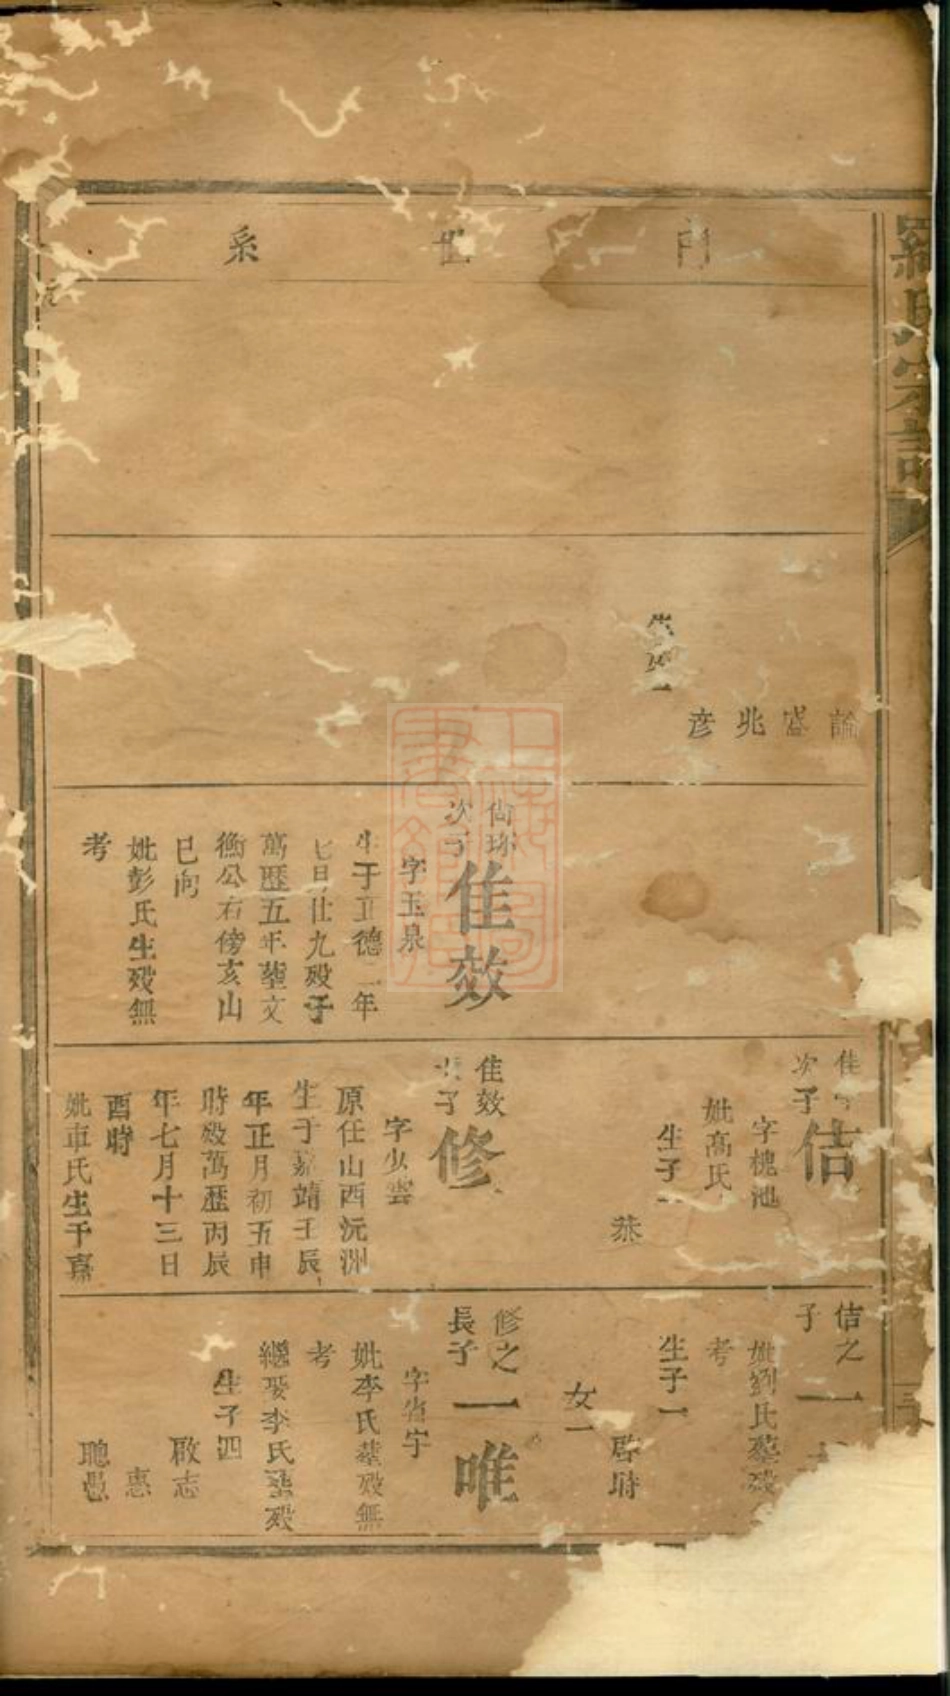 羅氏宗譜
門世系
論
盛
兆
彥
尙琢
次子
佳效
字玉泉
生于正德二年
七日壯九歿于
萬歷五年塟文
衡公右傍亥山
巳向
妣彭氏生歿無
考
佳
次子
佶
字槐池
妣高氏
生子一
恭
佳效
子
修
字少雲
原任山西沅洲
生于嘉靖壬辰
年正月初五申
時歿萬歷丙辰
年七月十三日
酉時
妣車氏生于嘉
佶之
子
一
妣劉氏塟歿
考
生子一
啓財
女一
修之
長子
一唯
字省宇
妣李氏塟歿無
考
繼娶李氏塟歿
生子四
啟志
惠
聰愚